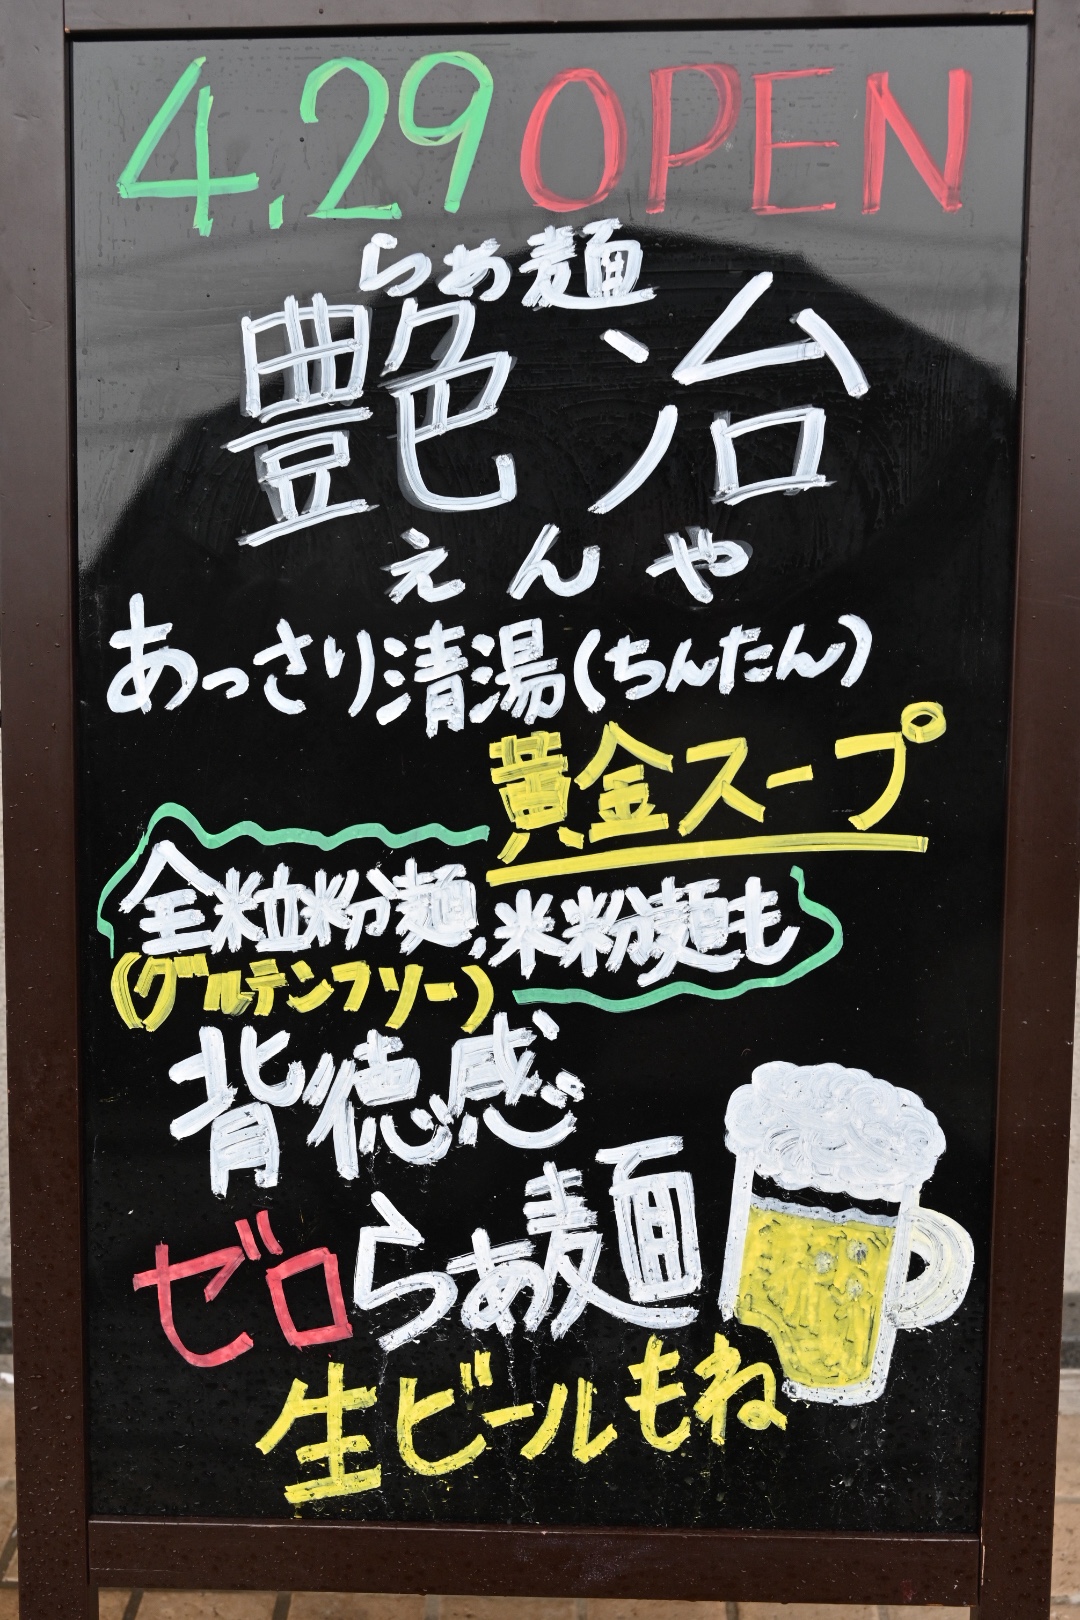 4.29 OPEN
らぁ麺
艶冶
えんや
あっさり清湯(ちんたん)
黄金スープ
全粒粉麺,米粉麺も
(グルテンフリー)
背徳感
ゼロらぁ麺
生ビールもね